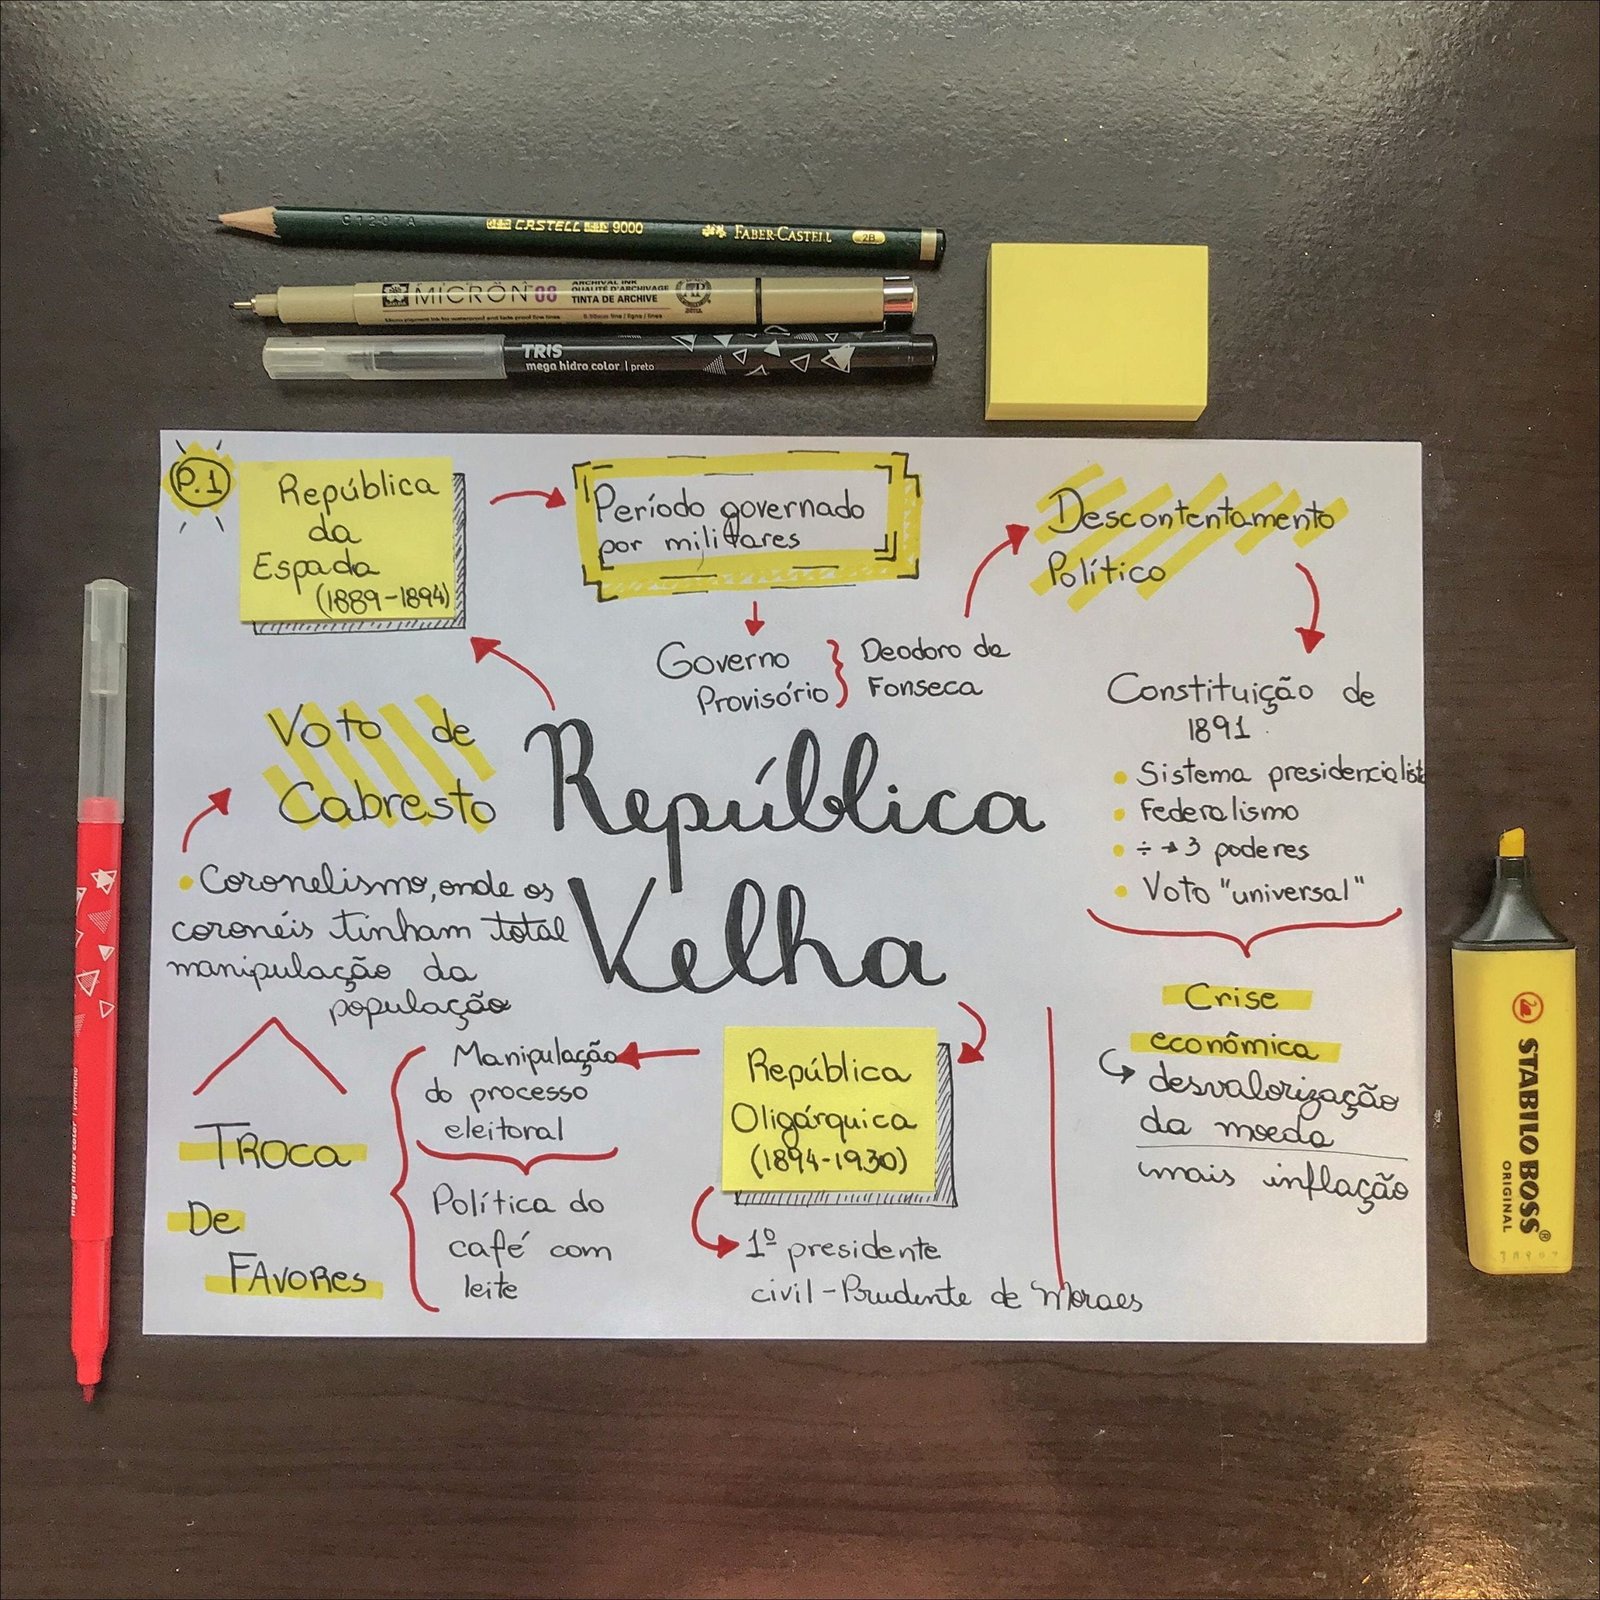 CASTELL 9000 FABER-CASTELL 2B
MICRON 08 ARCHIVAL INK
QUALITÉ D'ARCHIVAGE
TINTA DE ARCHIVE
TRIS
mega hidro color | preto
P.1
República
da
Espada
(1889-1894)
Período governado
por militares
Descontentamento
Político
Governo
Provisório
Deodoro da
Fonseca
Constituição de
1891
Sistema presidencialista
Federalismo
÷ → 3 poderes
Voto "universal"
Crise
econômica
desvalorização
da moeda
mais inflação
Voto de
Cabresto
República
Velha
Coronelismo, onde os
coronéis tinham total
manipulação da
população
TROCA
DE
FAVORES
Manipulação
do processo
eleitoral
Política do
café com
leite
República
Oligárquica
(1894-1930)
1º presidente
civil - Prudente de Moraes
mega hidro color | vermelho
STABILO BOSS®
ORIGINAL